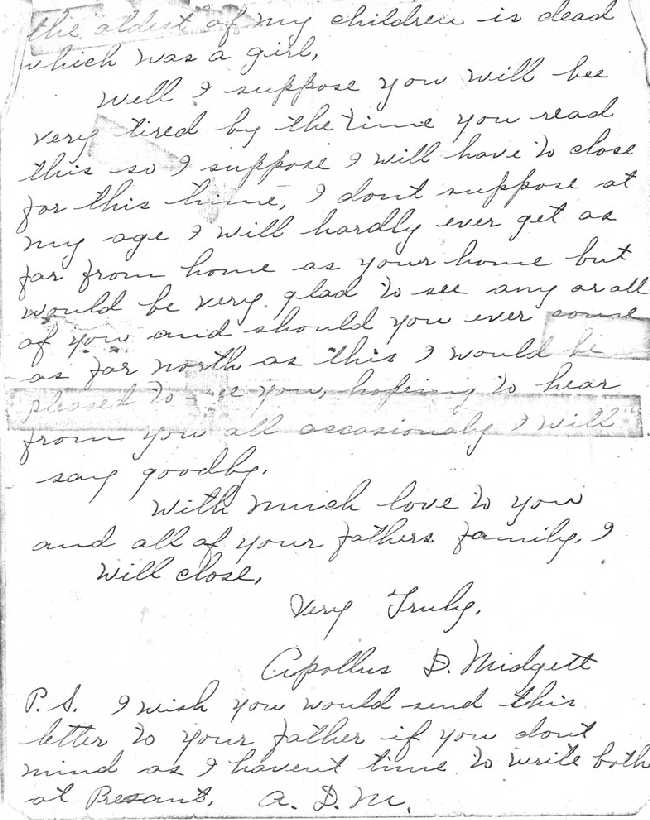 the oldest of my children is dead
which was a girl.
Well I suppose you will bee
very tired by the time you read
this so I suppose I will have to close
for this time, I dont suppose at
my age I will hardly ever get as
far from home as your home but
would be very glad to see any or all
of you and should you ever come
as far north as this I would be
pleased to see you, hoping to hear
from you all occasionaly I will
say goodby.
With much love to you
and all of your fathers family. I
will close,
Very Truly,
Apollus D. Midgett
P.S. I wish you would send this
letter to your father if you dont
mind as I havent time to write both
at Presant. A. D. M.